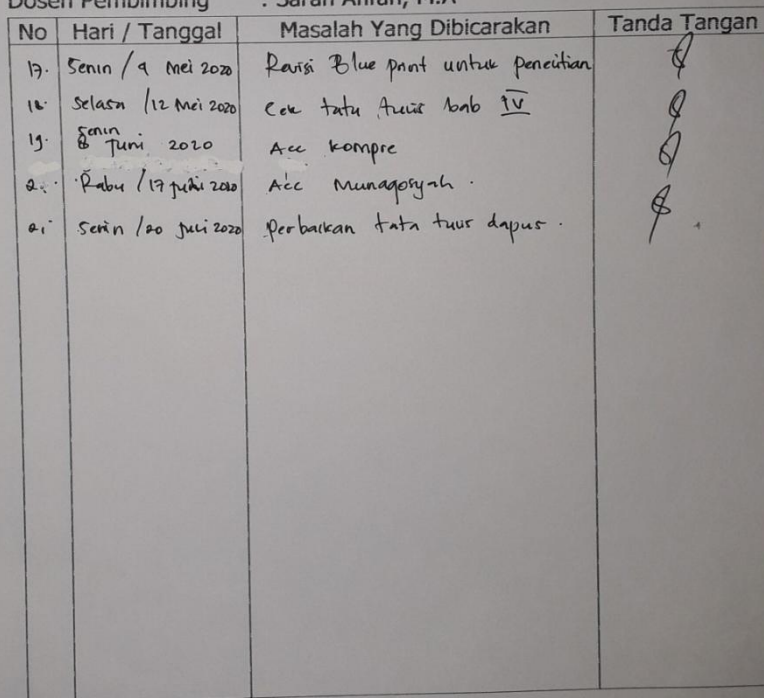 Dosen Pembimbing : Sarah Afifah, M.A
No Hari / Tanggal Masalah Yang Dibicarakan Tanda Tangan
17. Senin / 9 Mei 2020 Revisi Blue print untuk penelitian
18. Selasa / 12 Mei 2020 Cek tata tulis bab IV
19. Senin 8 Juni 2020 Acc kompre
20. Rabu / 17 Juni 2020 Acc Munaqosyah.
21. Senin / 20 Juli 2020 Perbaikan tata tulis dapus.